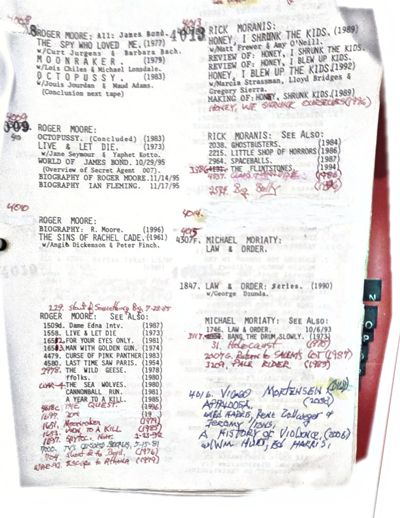 ROGER MOORE: All: James Bond.
THE SPY WHO LOVED ME.(1977)
w/Curt Jurgens & Barbara Bach.
MOONRAKER. (1979)
w/Lois Chiles & Michael Lonsdale.
OCTOPUSSY. (1983)
w/Louis Jourdan & Maud Adams.
(Conclusion next tape)
ROGER MOORE:
OCTOPUSSY. (Concluded) (1983)
LIVE & LET DIE. (1973)
w/Jane Seymour & Yaphet Kotto.
WORLD OF JAMES BOND. 10/29/95
(Overview of Secret Agent 007).
BIOGRAPHY OF ROGER MOORE.11/14/95
BIOGRAPHY IAN FLEMING. 11/17/95
ROGER MOORE:
BIOGRAPHY: R. Moore. (1996)
THE SINS OF RACHEL CADE.(1961)
w/Angie Dickenson & Peter Finch.
ROGER MOORE: SEE ALSO:
1509d. Dame Edna Intv. (1987)
1558. LIVE & LET DIE (1973)
FOR YOUR EYES ONLY. (1981)
MAN WITH GOLDEN GUN. (1974)
4479. CURSE OF PINK PANTHER (1983)
4580. LAST TIME SAW PARIS (1954)
THE WILD GEESE. (1978)
ffolks. (1980)
THE SEA WOLVES. (1980)
CANNONBALL RUN. (1981)
A YEAR TO A KILL. (1985)
THE QUEST. (1996)
MOONRAKER (1979)
VIEW TO A KILL (1985)
Escape to Athena (1979)
4013
RICK MORANIS:
HONEY, I SHRUNK THE KIDS. (1989)
w/Matt Frewer & Amy O'Neill.
REVIEW OF: HONEY, I SHRUNK THE KIDS.
REVIEW OF: HONEY, I BLEW UP KIDS.
HONEY, I BLEW UP THE KIDS.(1992)
w/Marcia Strassman, Lloyd Bridges &
Gregory Sierra.
MAKING OF:HONEY, SHRUNK KIDS.(1989)
HONEY, WE SHRUNK OURSELVES(1996)
RICK MORANIS: SEE ALSO:
2038. GHOSTBUSTERS. (1984)
2215. LITTLE SHOP OF HORRORS (1986)
2964. SPACEBALLS. (1987)
THE FLINTSTONES. (1994)
4014
4015
4307F. MICHAEL MORIATY:
LAW & ORDER.
1847. LAW & ORDER: Series. (1990)
w/George Dzunda.
MICHAEL MORIATY: SEE ALSO:
1746. LAW & ORDER. 10/6/93
BANG THE DRUM SLOWLY. (1973)
31. Holocaust (1978)
2007G. Return to Salem's Lot (1987)
3209. PALE RIDER (1985)
4016. VIGGO MORTENSEN
APPALOOSA, (2008)
w/Ed HARRIS, Rene Zellweger &
JEREMY IRONS.
A HISTORY OF VIOLENCE, (2006)
w/WM HURT, ED HARRIS,
N
O
P